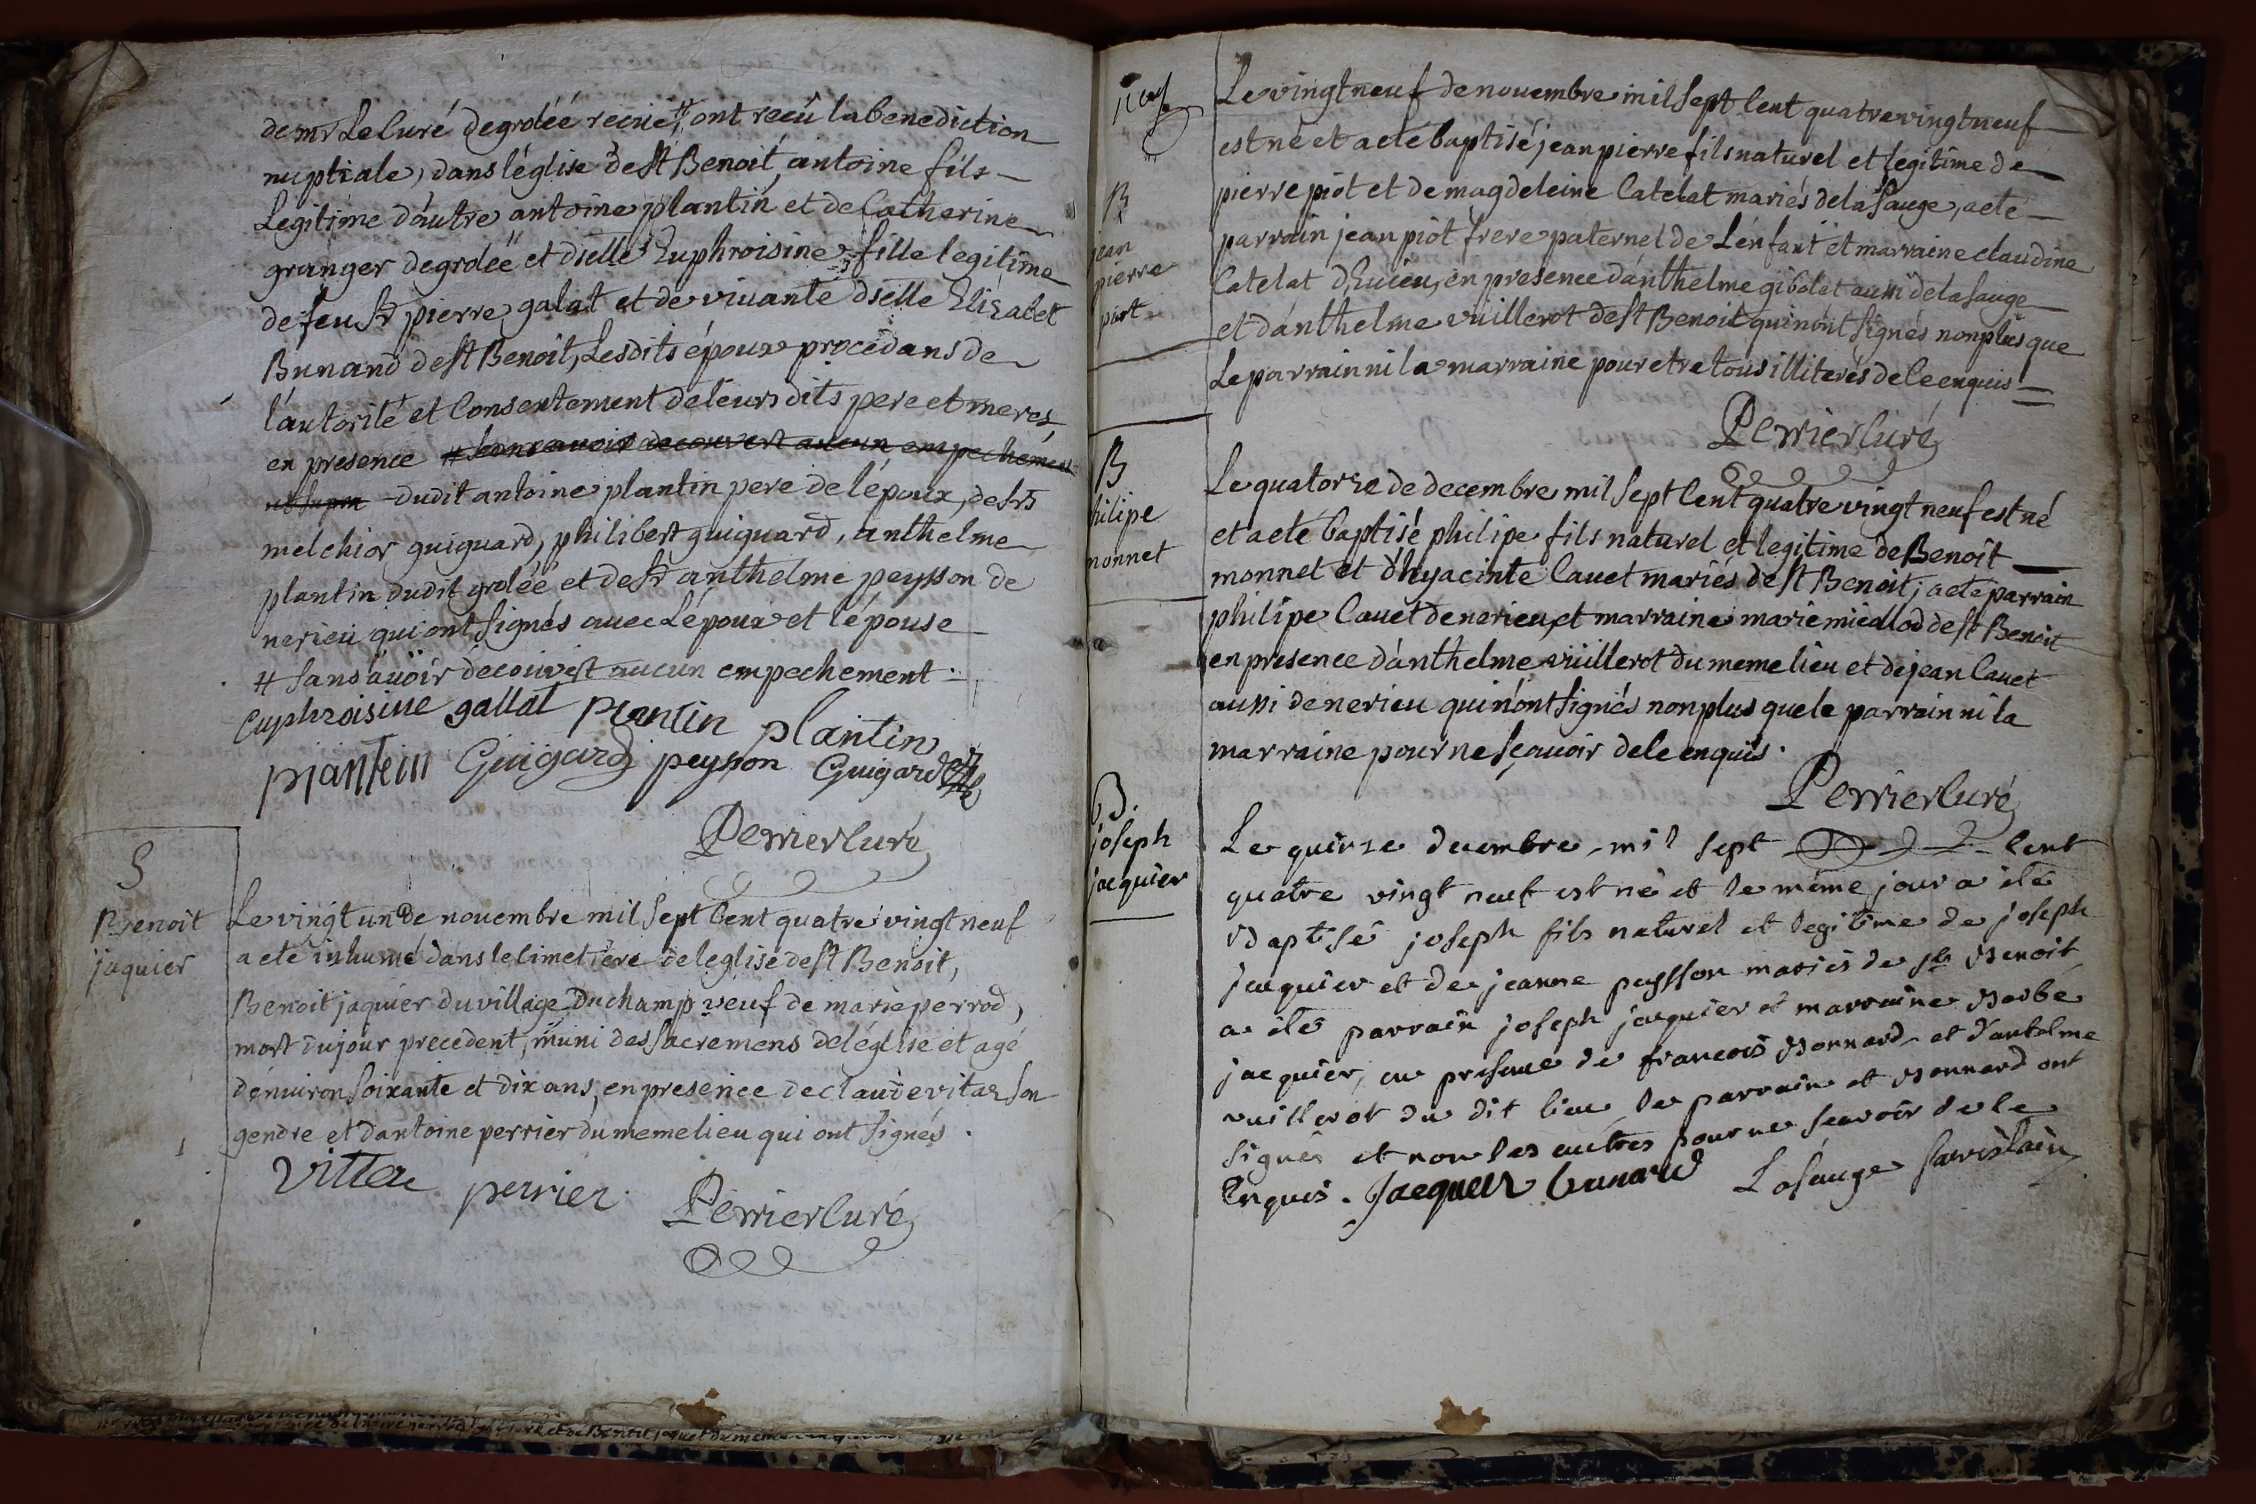 de mr Le Curé de grolée recue # ont recû la benediction
nuptiale, dans léglise de st Benoit, antoine fils
Legitime dautre antoine plantin et de Catherine
granger de grolée et dlle Euphroisine fille legitime
de feu sr pierre galat et de vivante dlle Elizabet
Bunand de st Benoit, Lesdits époux procedans de
lautorité et Consentement de leurs dits pere et meres,
en presence # sans avoir decouvert aucun empechement
dudit antoine plantin pere de lépoux, de srs
melchior guiguard, philibert guiguard, anthelme
plantin dudit grolée et de sr anthelme peysson de
nerieu qui ont signés avec Lépoux et lépouse
# sans avoir decouvert aucun empechement
Euphroisine gallat plantin plantin
plantin Guigard peysson Guigard
Perrier Curé
S
Benoit
jaquier
Le vingt un de novembre mil sept Cent quatre vingt neuf
a eté inhumé dans le Cimetiere de leglise de st Benoit,
Benoit jaquier du village Du champ veuf de marie perrod,
mort du jour precedent, muni des sacremens de léglise et agé
denviron soixante et dix ans, en presence de claude vitaz son
gendre et dantoine perrier du meme lieu qui ont signés.
Vitta perrier Perrier Curé
B
jean
pierre
piot
Le vingt neuf de novembre mil sept Cent quatre vingt neuf
est né et a eté baptisé jean pierre fils naturel et legitime de
pierre piot et de magdeleine Catelat mariés de la sauge, a eté
parrain jean piot frere paternel de Lenfant et marraine claudine
Catelat en presence danthelme gibolet aussi de la sauge
et danthelme vuillerot de st Benoit qui nont signés non plus que
Le parrain ni la marraine pour etre tous illiterés de ce enquis
Perrier Curé
B
hilipe
monnet
Le quatorze de decembre mil sept Cent quatre vingt neuf est né
et a eté baptisé philipe fils naturel et legitime de Benoit
monnet et dhyacinte Cavet mariés de st Benoit; a eté parrain
philipe Cavet de nerieu, et marraine marie miedlod de st Benoit
en presence danthelme vuillerot du meme lieu et de jean Cavet
aussi de nerieu qui nont signés non plus que le parrain ni la
marraine pour ne sçavoir de ce enquis.
Perrier Curé
B.
joseph
jacquier
Le quinze decembre mil sept Cent
quatre vingt neuf est né et le même jour a été
Baptisé joseph fils naturel et legitime de joseph
jacquier et de jeanne peysson mariés de st Benoit
a été parrain joseph jacquier et marraine Barbe
jacquier, en presence de francois Bonnard et d'antelme
vuillerot du dit lieu le parrain et Bonnard ont
signés et non les autres pour ne scavoir de ce
Enquis. Jacquier bunard Lasauge